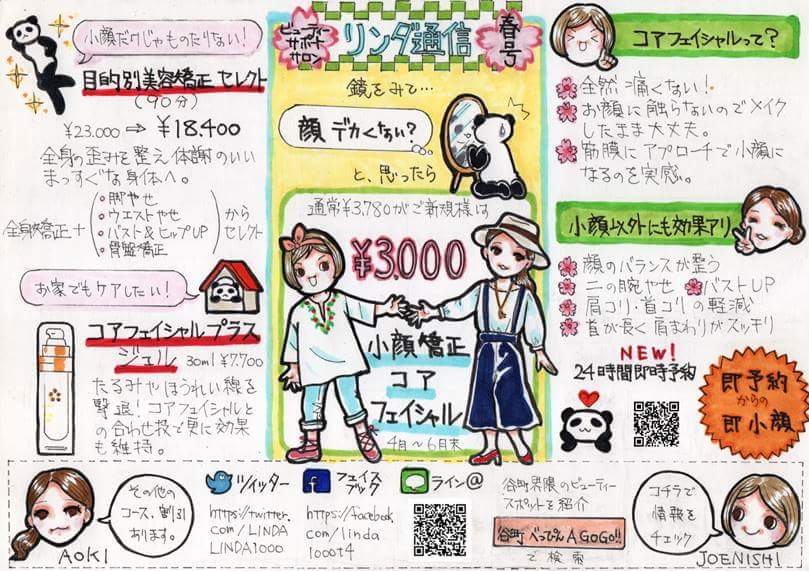 ビューティー
サポート
サロン
リンダ通信
春号
小顔だけじゃものたりない!
目的別美容矯正セレクト
(90分)
¥23.000⇒¥18.400
全身の歪みを整え体謝のいい
まっすぐな身体へ。
全身矯正+
・脚やせ
・ウエストやせ
・バスト&ヒップUP
・骨盤矯正
から
セレクト
お家でもケアしたい!
コアフェイシャルプラス
ジェル 30ml ¥7.700
たるみやほうれい線を
撃退!コアフェイシャルと
の合わせ技で更に効果
も維持。
鏡をみて…
顔デカくない?
と、思ったら
通常¥3.780がご新規様は
¥3.000
小顔矯正
コア
フェイシャル
4月〜6月末
コアフェイシャルって?
全然痛くない!
お顔に触らないのでメイク
したまま大丈夫。
筋膜にアプローチで小顔に
なるのを実感。
小顔以外にも効果アリ
顔のバランスが整う
二の腕やせ バストUP
肩コリ・首コリの軽減
首が長く肩まわりがスッキリ
NEW!
24時間即時予約
即予約
からの
即小顔
その他の
コース、割引
あります。
AOKI
ツイッター
https://twitter.
com/LINDA
LINDA1000
フェイス
ブック
https://facebook.
com/linda
1000t4
ライン@
谷町界隈のビューティー
スポットを紹介
谷町べっぴんA GOGO!!
で検索
コチラで
情報を
チェック
JOENISHI